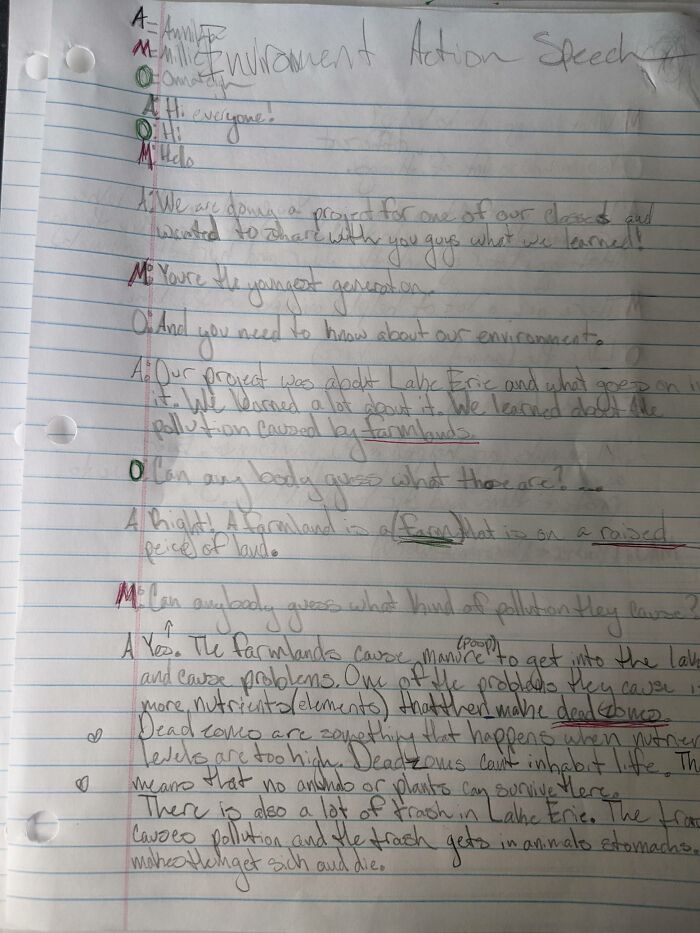 A=
M=Millie
O=
Enviroment Action Speech
A: Hi everyone!
O: Hi
M: Hello
A: We are doing a project for one of our classes and
wanted to share with you guys what we learned!
M: Youre the youngest generation.
O: And you need to know about our environment.
A: Our project was about Lake Erie and what goes on in
it. We learned a lot about it. We learned about the
pollution caused by farmlands.
O: Can any body guess what those are?
A Right! A farmland is a (farm) that is on a raised
peice of land.
M: Can anybody guess what kind of pollution they cause?
(poop)
A Yes. The farmlands cause manure to get into the lake
and cause problems. One of the problems they cause is
more nutrients (elements) that then make dead zones.
Dead zones are something that happens when nutrient
levels are too high. Dead zones cant inhabit life. This
means that no animals or plants can survive there.
There is also a lot of trash in Lake Erie. The trash
causes pollution and the trash gets in animals stomachs.
makes them get sick and die.